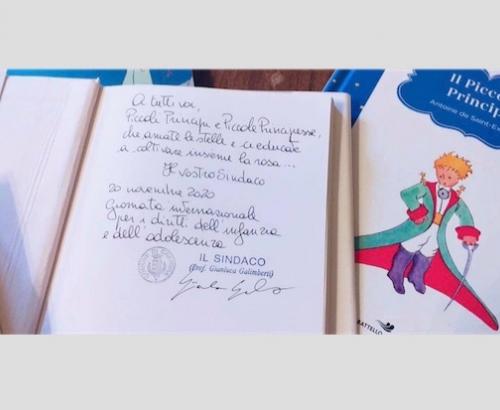 A tutti voi,
Piccoli Principi e Piccole Principesse,
che amate le stelle e ci educate
a coltivare insieme la rosa...
Il Vostro Sindaco
20 novembre 2020
Giornata internazionale
per i diritti dell'infanzia
e dell'adolescenza
IL SINDACO
(Prof. Gianluca Galimberti)
Il Picco
Princip
Antoine de Saint-Ex
BATTELLO